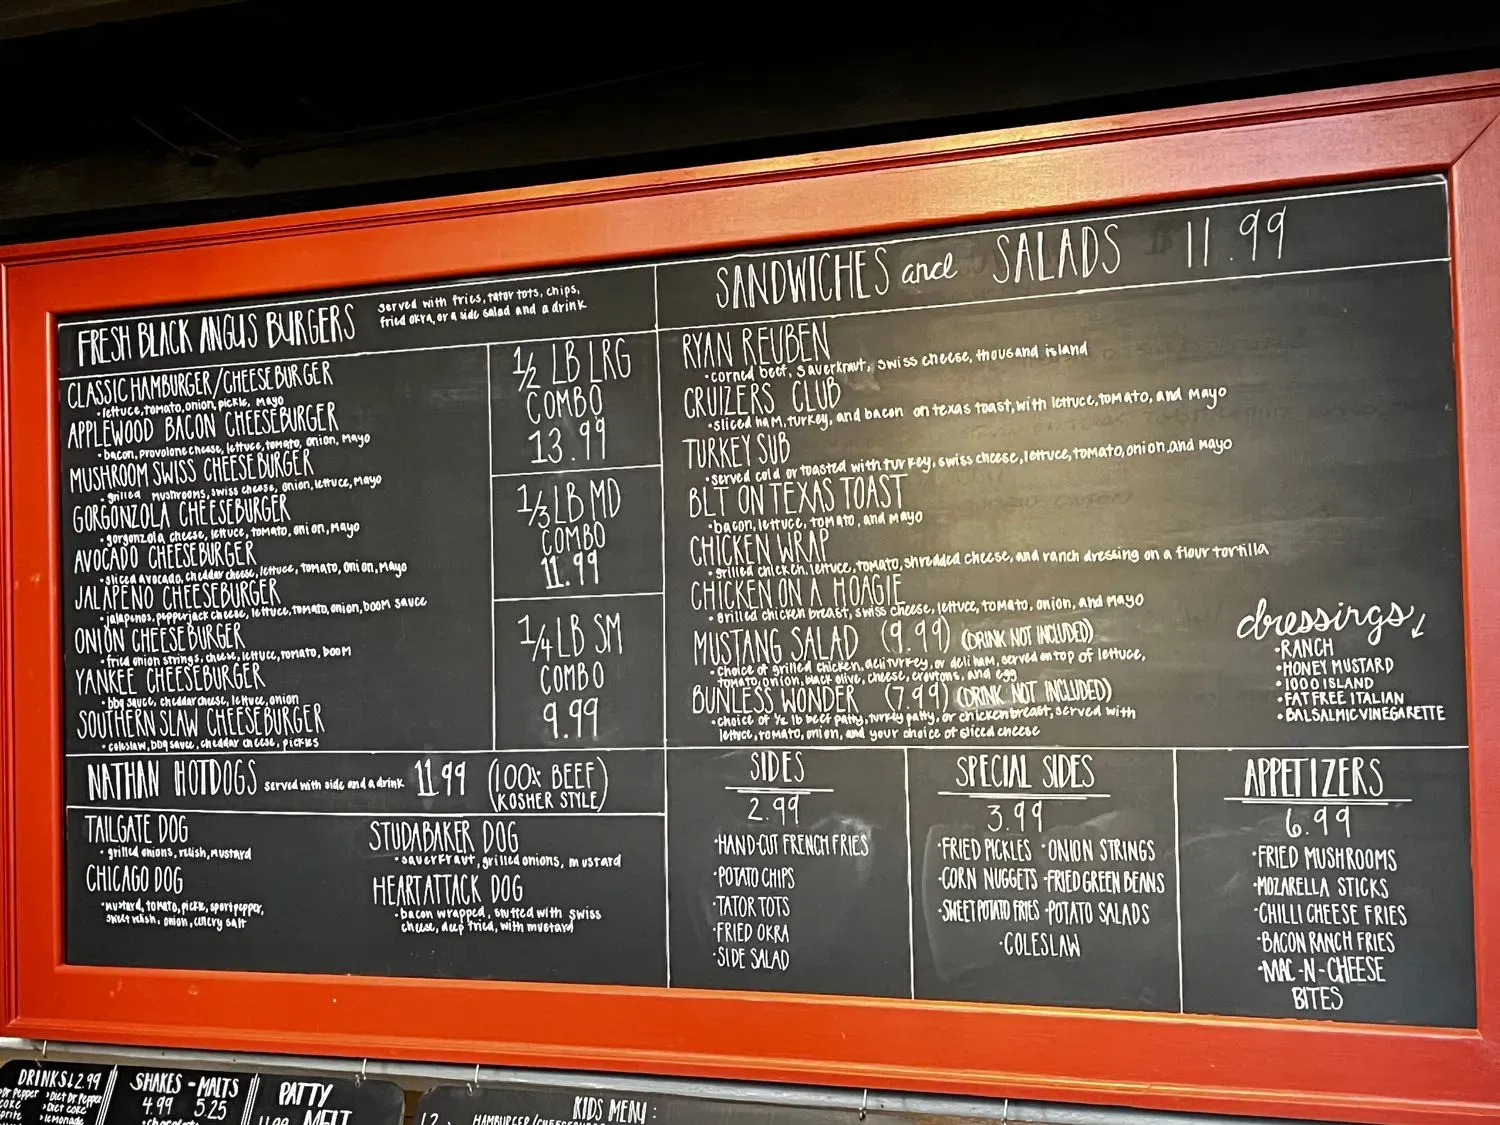 FRESH BLACK ANGUS BURGERS
served with fries, tator tots, chips,
fried okra, or a side salad and a drink
CLASSIC HAMBURGER/CHEESEBURGER
•lettuce, tomato, onion, pickle, mayo
APPLEWOOD BACON CHEESEBURGER
•bacon, provolone cheese, lettuce, tomato, onion, mayo
MUSHROOM SWISS CHEESEBURGER
•grilled mushrooms, swiss cheese, onion, lettuce, mayo
GORGONZOLA CHEESEBURGER
•gorgonzola cheese, lettuce, tomato, onion, mayo
AVOCADO CHEESEBURGER
•sliced avocado, cheddar cheese, lettuce, tomato, onion, mayo
JALAPENO CHEESEBURGER
•jalapenos, pepperjack cheese, lettuce, tomato, onion, boom sauce
ONION CHEESEBURGER
•fried onion strings, cheese, lettuce, tomato, boom
YANKEE CHEESEBURGER
•bbq sauce, cheddar cheese, lettuce, onion
SOUTHERN SLAW CHEESEBURGER
•coleslaw, bbq sauce, cheddar cheese, pickles
1/2 LB LRG
COMBO
13.99
1/3 LB MD
COMBO
11.99
1/4 LB SM
COMBO
9.99
NATHAN HOTDOGS served with side and a drink 11.99 (100% BEEF)
(KOSHER STYLE)
TAILGATE DOG
•grilled onions, relish, mustard
CHICAGO DOG
•mustard, tomato, pickle, sport pepper,
sweet relish, onion, celery salt
STUDABAKER DOG
•sauerkraut, grilled onions, mustard
HEARTATTACK DOG
•bacon wrapped, stuffed with swiss
cheese, deep fried, with mustard
SANDWICHES and SALADS 11.99
RYAN REUBEN
•corned beef, sauerkraut, swiss cheese, thousand island
CRUIZERS CLUB
•sliced ham, turkey, and bacon on texas toast, with lettuce, tomato, and mayo
TURKEY SUB
•served cold or toasted with turkey, swiss cheese, lettuce, tomato, onion, and mayo
BLT ON TEXAS TOAST
•bacon, lettuce, tomato, and mayo
CHICKEN WRAP
•grilled chicken, lettuce, tomato, shredded cheese, and ranch dressing on a flour tortilla
CHICKEN ON A HOAGIE
•grilled chicken breast, swiss cheese, lettuce, tomato, onion, and mayo
MUSTANG SALAD (9.99) (DRINK NOT INCLUDED)
•choice of grilled chicken, deli turkey, or deli ham, served on top of lettuce,
tomato, onion, black olive, cheese, croutons, and egg
BUNLESS WONDER (7.99) (DRINK NOT INCLUDED)
•choice of 1/2 lb beef patty, turkey patty, or chicken breast, served with
lettuce, tomato, onion, and your choice of sliced cheese
dressings
•RANCH
•HONEY MUSTARD
•1000 ISLAND
•FAT FREE ITALIAN
•BALSALMIC VINEGARETTE
SIDES
2.99
•HAND-CUT FRENCH FRIES
•POTATO CHIPS
•TATOR TOTS
•FRIED OKRA
•SIDE SALAD
SPECIAL SIDES
3.99
•FRIED PICKLES •ONION STRINGS
•CORN NUGGETS •FRIED GREEN BEANS
•SWEET POTATO FRIES •POTATO SALADS
•COLESLAW
APPETIZERS
6.99
•FRIED MUSHROOMS
•MOZARELLA STICKS
•CHILLI CHEESE FRIES
•BACON RANCH FRIES
•MAC-N-CHEESE
BITES
DRINKS 2.99
Dr Pepper >Diet Dr Pepper
Coke >Diet Coke
Sprite >lemonade
SHAKES - MALTS
4.99 5.25
PATTY
MELT
KIDS MENU: